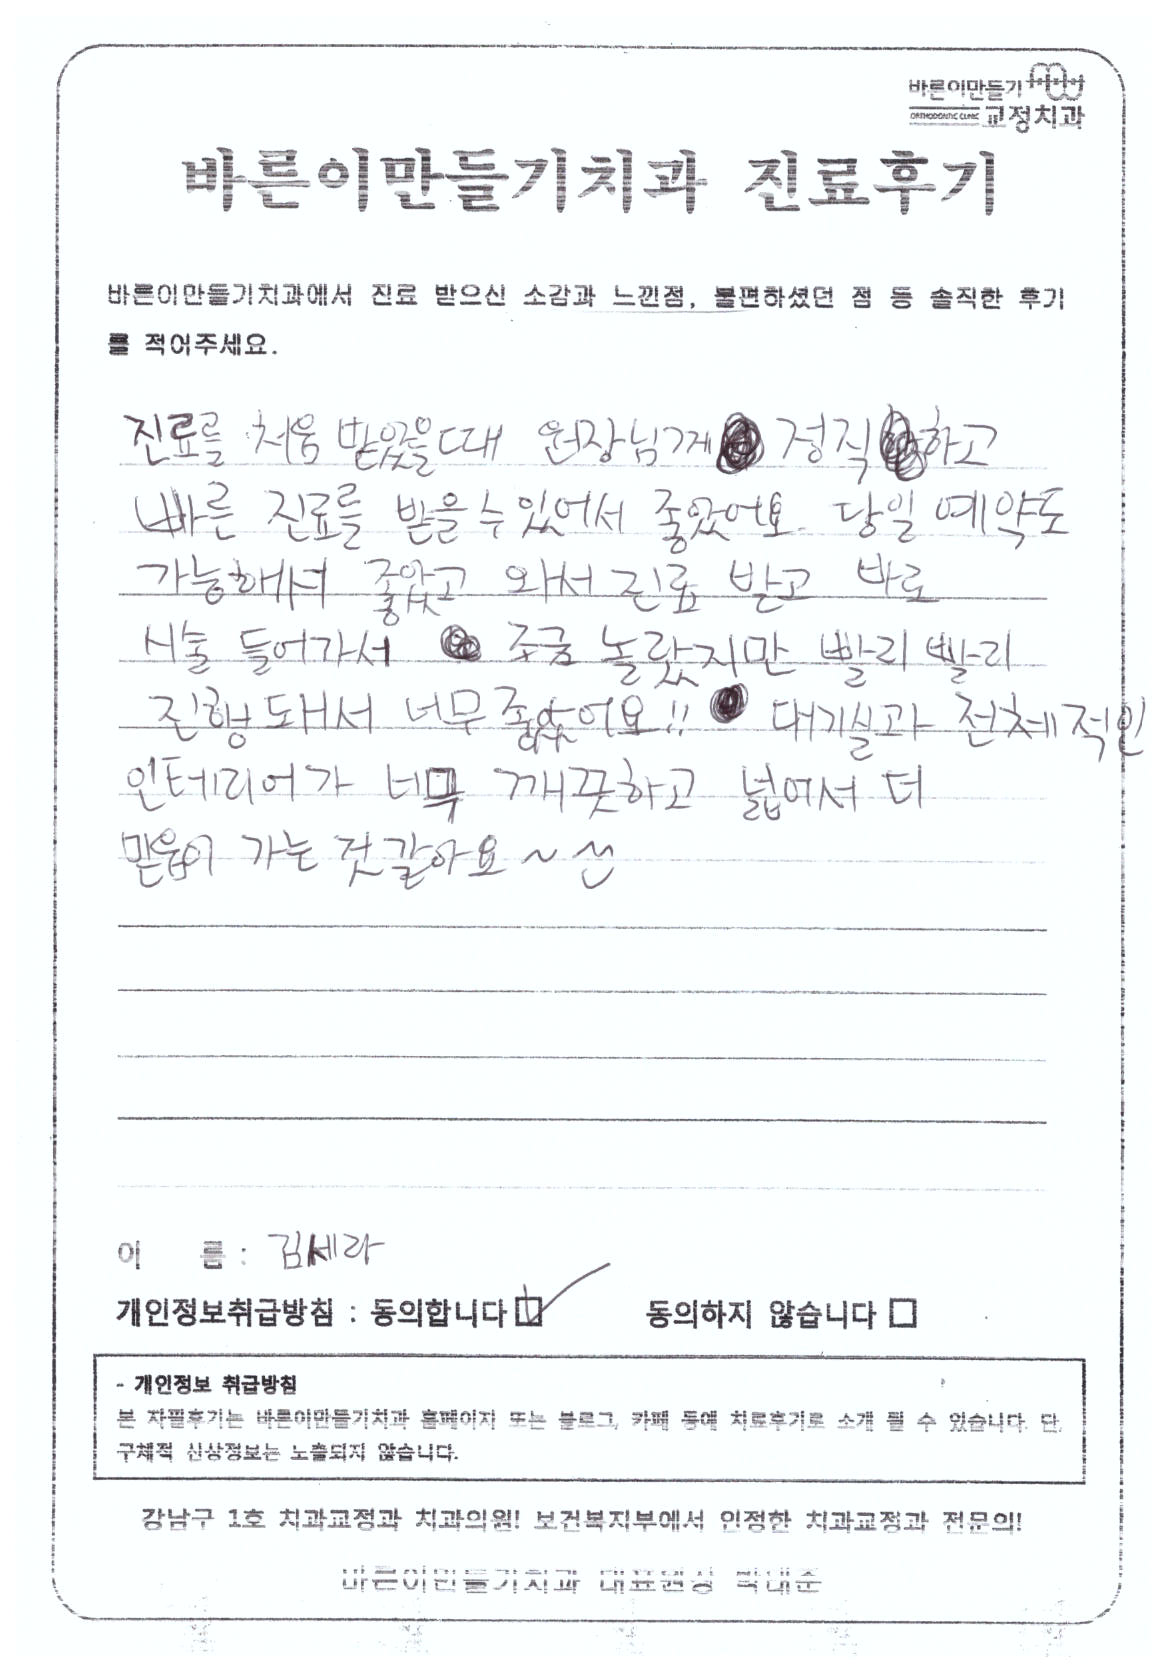 바른이만들기
ORTHODONTIC CLINIC 교정치과
바른이만들기치과 진료후기
바른이만들기치과에서 진료 받으신 소감과 느낀점, 불편하셨던 점 등 솔직한 후기
를 적어주세요.
진료를 처음 받았을때 원장님께 정직하고
빠른 진료를 받을수있어서 좋았어요. 당일 예약도
가능해서 좋았고 와서 진료 받고 바로
시술 들어가서 조금 놀랐지만 빨리빨리
진행돼서 너무좋았어요!! 대기실과 전체적인
인테리어가 너무 깨끗하고 넓어서 더
믿음이 가는 것 같아요~
이 름 : 김세라
개인정보취급방침 : 동의합니다 동의하지 않습니다
- 개인정보 취급방침
본 자필후기는 바른이만들기치과 홈페이지 또는 블로그, 카페 등에 치료후기로 소개 될 수 있습니다. 단,
구체적 신상정보는 노출되지 않습니다.
강남구 1호 치과교정과 치과의원! 보건복지부에서 인정한 치과교정과 전문의!
바른이만들기치과 대표원장